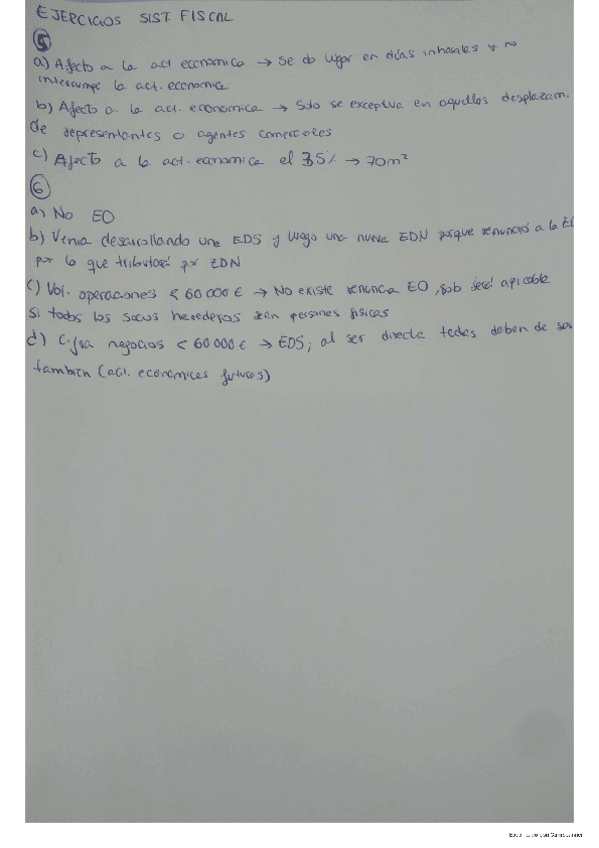 EJERCICIOS SIST FISCAL
5
a) Afecto a la act economica → Se da lugar en días inhabiles y no
interrumpe la act. economica
b) Afecto a la act. economica → Solo se exceptua en aquellos desplazam.
de representantes o agentes comerciales
c) Afecto a la act. economica el 35% → 70m²
6
a) No EO
b) Venia desarrollando una EDS y luego una nueva EDN porque renunció a la EO
por lo que tributará por EDN
c) Vol. operaciones < 60 000 € → No existe renuncia EO, solo será aplicable
si todos los socios herederos sean personas fisicas
d) Cifra negocios < 60 000 € → EDS; al ser directa todas deben de ser
tambien (act. economicas futuras)